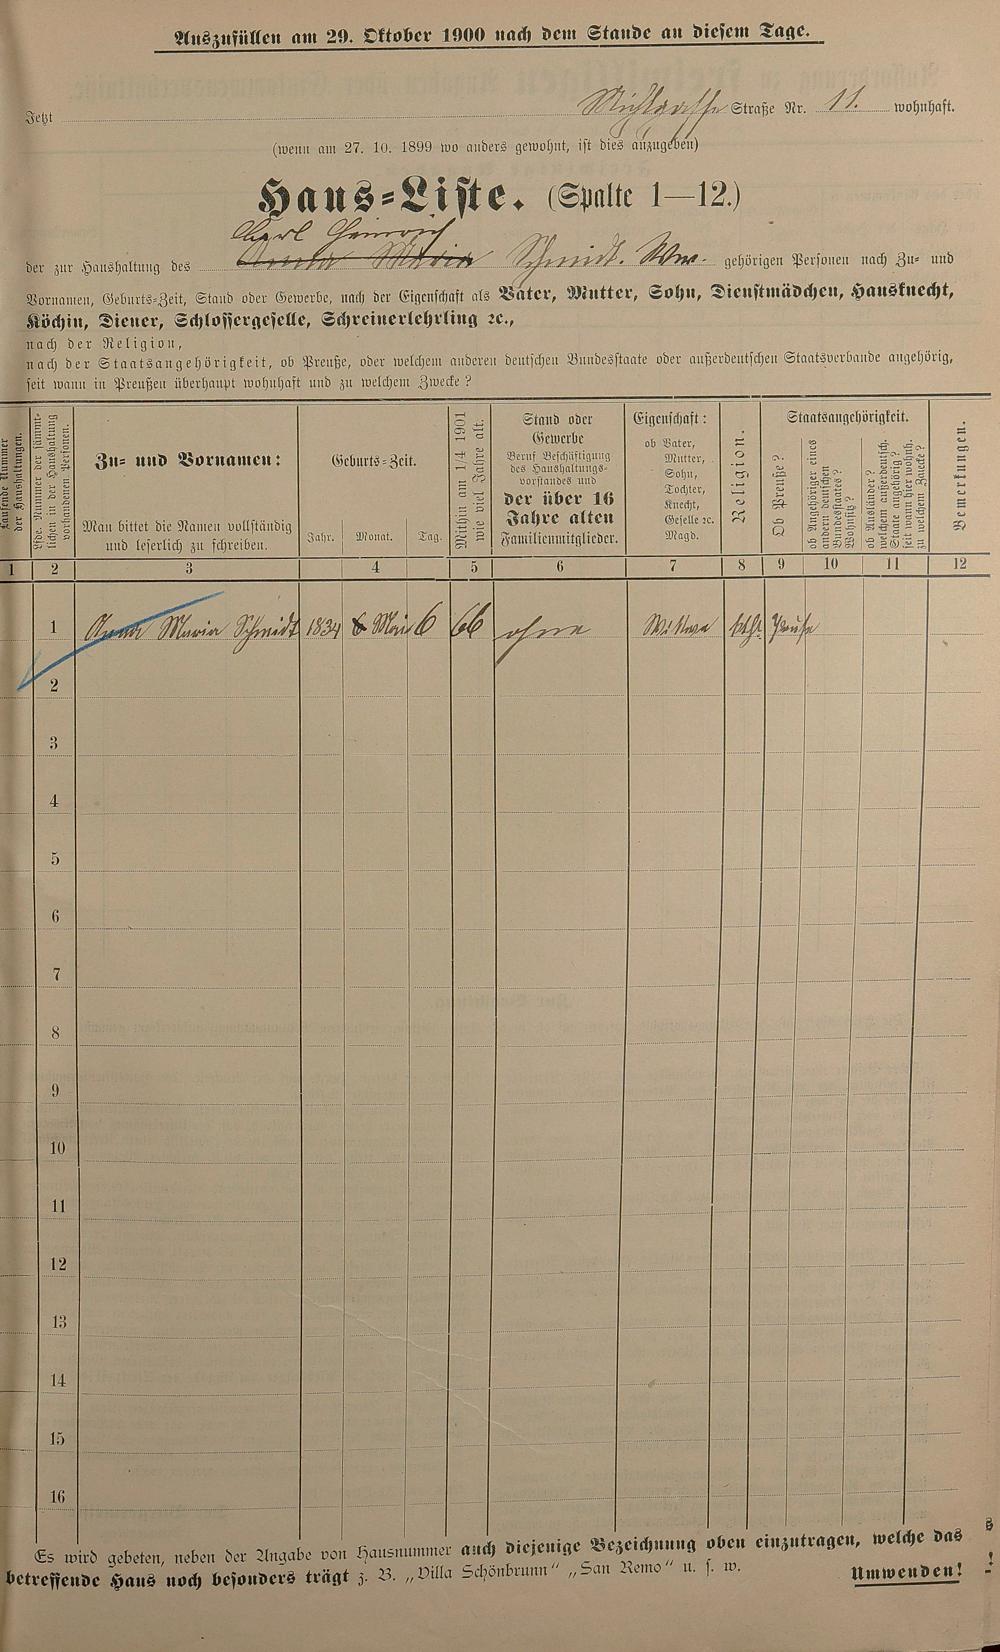 Auszufüllen am 29. Oktober 1900 nach dem Stande an diesem Tage.
Jetzt Straße Nr. 11. wohnhaft.
(wenn am 27. 10. 1899 wo anders gewohnt, ist dies anzugeben)
Haus-Liste. (Spalte 1—12.)
Carl Heinrich
der zur Haushaltung des Anna Maria Schmidt. Ww. gehörigen Personen nach Zu- und
Vornamen, Geburts-Zeit, Stand oder Gewerbe, nach der Eigenschaft als Vater, Mutter, Sohn, Dienstmädchen, Hausknecht,
Köchin, Diener, Schlossergeselle, Schreinerlehrling ꝛc.,
nach der Religion,
nach der Staatsangehörigkeit, ob Preuße, oder welchem anderen deutschen Bundesstaate oder außerdeutschen Staatsverbande angehörig,
seit wann in Preußen überhaupt wohnhaft und zu welchem Zwecke?
Laufende Nummer
der Haushaltungen.
Lfde. Nummer der sämmt-
lichen in der Haushaltung
vorhandenen Personen.
Zu- und Vornamen:
Man bittet die Namen vollständig
und leserlich zu schreiben.
Geburts-Zeit.
Jahr. Monat. Tag.
Mithin am 1/4 1901
wie viel Jahre alt.
Stand oder
Gewerbe
Beruf Beschäftigung
des Haushaltungs-
vorstandes und
der über 16
Jahre alten
Familienmitglieder.
Eigenschaft:
ob Vater,
Mutter,
Sohn,
Tochter,
Knecht,
Geselle ꝛc.
Magd.
Religion.
Staatsangehörigkeit.
Ob Preuße?
ob Angehöriger eines
andern deutschen
Bundesstaates?
Wohnsitz?
ob Ausländer?
welchem außerdeutsch.
Staate angehörig?
seit wann hier wohnh.
zu welchem Zwecke?
Bemerkungen.
1 2 3 4 5 6 7 8 9 10 11 12
1 Anna Maria Schmidt 1834 6 Mai 6 66 ohne Wittwe kth. Preuße
2
3
4
5
6
7
8
9
10
11
12
13
14
15
16
Es wird gebeten, neben der Angabe von Hausnummer auch diejenige Bezeichnung oben einzutragen, welche das
betreffende Haus noch besonders trägt z. B. „Villa Schönbrunn" „San Remo" u. s. w.
Umwenden!